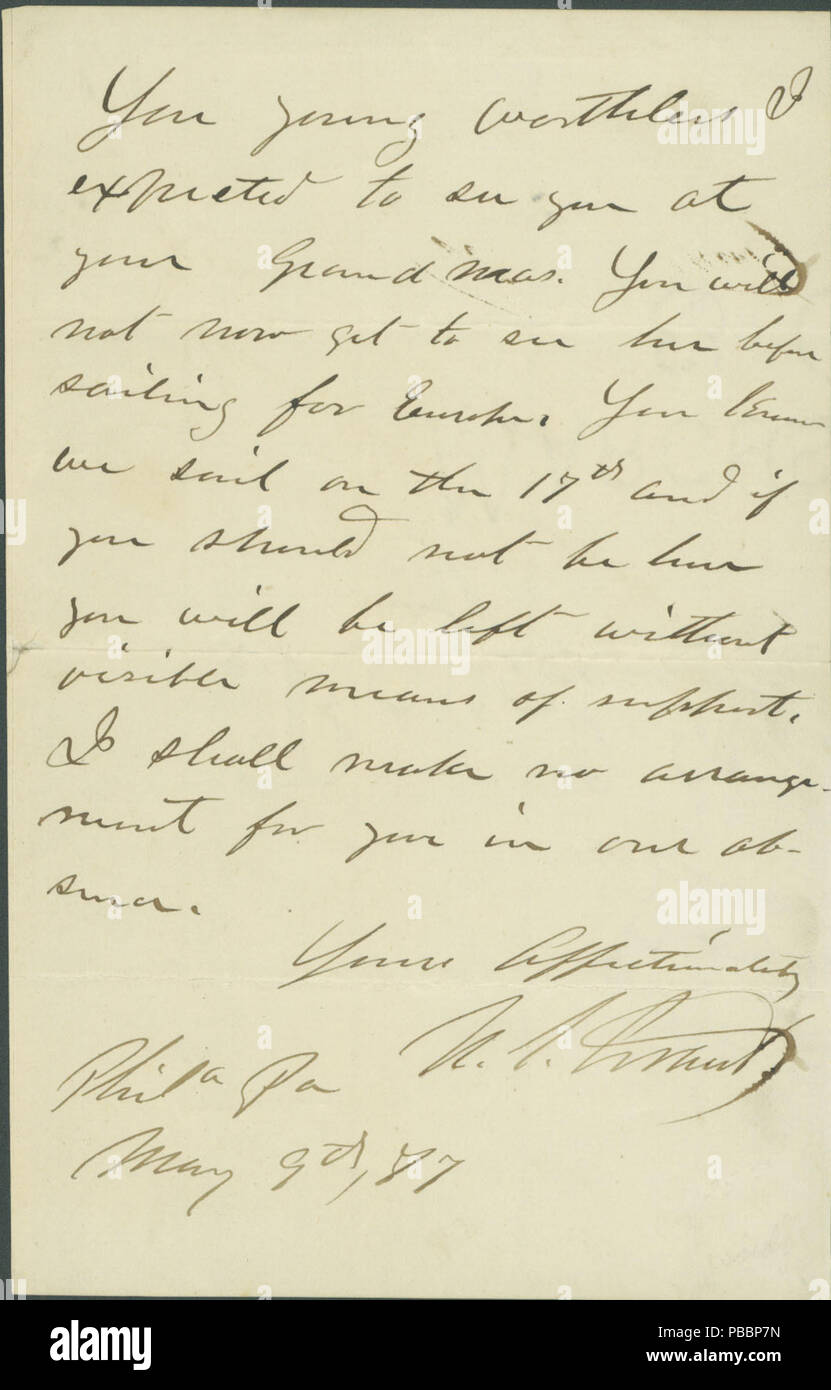 You young worthless I
expected to see you at
your Grandmas. You will
not now get to see her before
sailing for Europe. You know
we sail on the 17th and if
you should not be here
you will be left without
visible means of support.
I shall make no arrange-
ment for you in our ab-
sence.
Yours Affectionately
U. S. Grant
Phila Pa
May 9th, 77
alamy
Image ID: PBBP7N
www.alamy.com